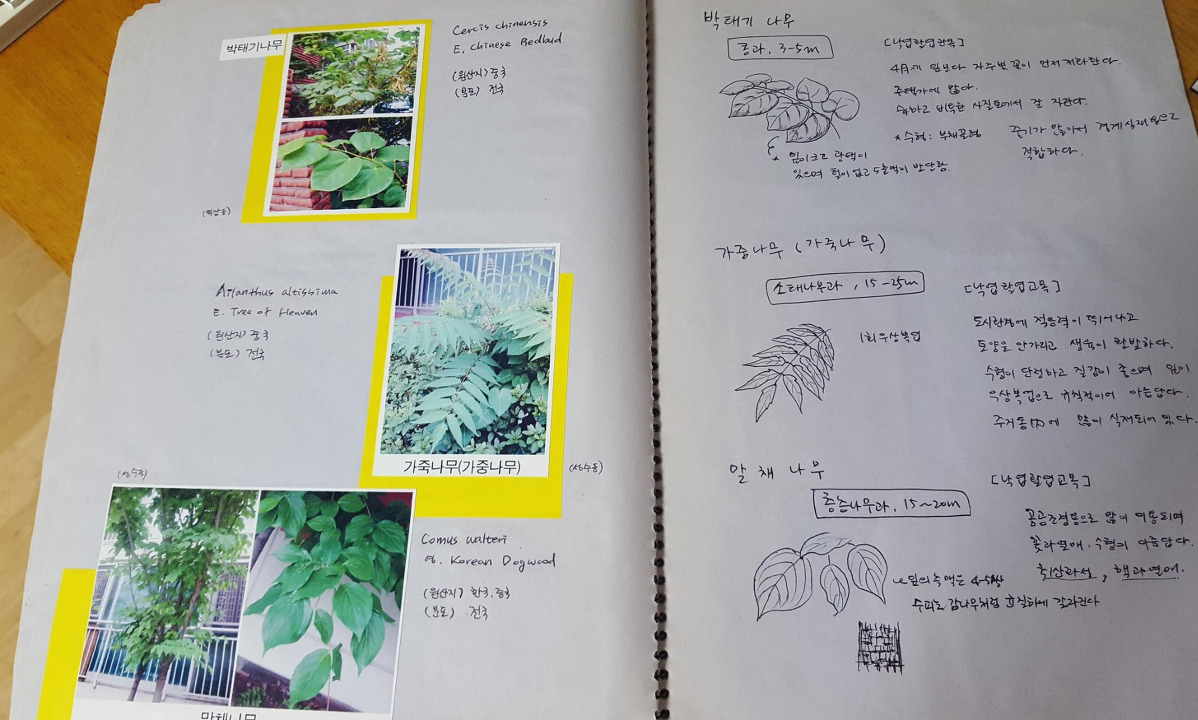 박태기나무
Cercis chinensis
E, Chinese Redbud
(원산지) 중국
(분포) 전국
Ailanthus altissima
E. Tree of Heaven
(원산지) 중국
(분포) 전국
가죽나무(가중나무)
(성수동)
(성수동)
Cornus walteri
영. Korean Dogwood
(원산지) 한국, 중국
(분포) 전국
말채나무
박태기 나무
콩과, 3-5m
[낙엽활엽관목]
4月에 잎보다 자주빛 꽃이 먼저
주택가에 많다.
비옥한 사질토에서 잘 자란다.
*수형: 부채꼴형
줄기가 많아서 경계식재용으로
적합하다.
* 잎이 크고 광택이
있으며 털이 없고 5출맥이 발달함.
가중나무 (가죽나무)
소태나무과, 15-25m
[낙엽활엽교목]
1회우상복엽
도시환경에 적응력이 뛰어나고
토양을 안가리고 생육이 활발하다.
수형이 단정하고 질감이 좋으며 잎이
우상복엽으로 규칙적이어 아름답다.
많이 식재되어 있다.
말 채 나 무
층층나무과, 15~20m
[낙엽활엽교목]
공공조경용으로 많이 이용되며
꽃과 열매, 수형이 아름답다.
취산화서, 핵과열매.
잎의 측맥은 4-5쌍
수피는 감나무처럼 갈라진다